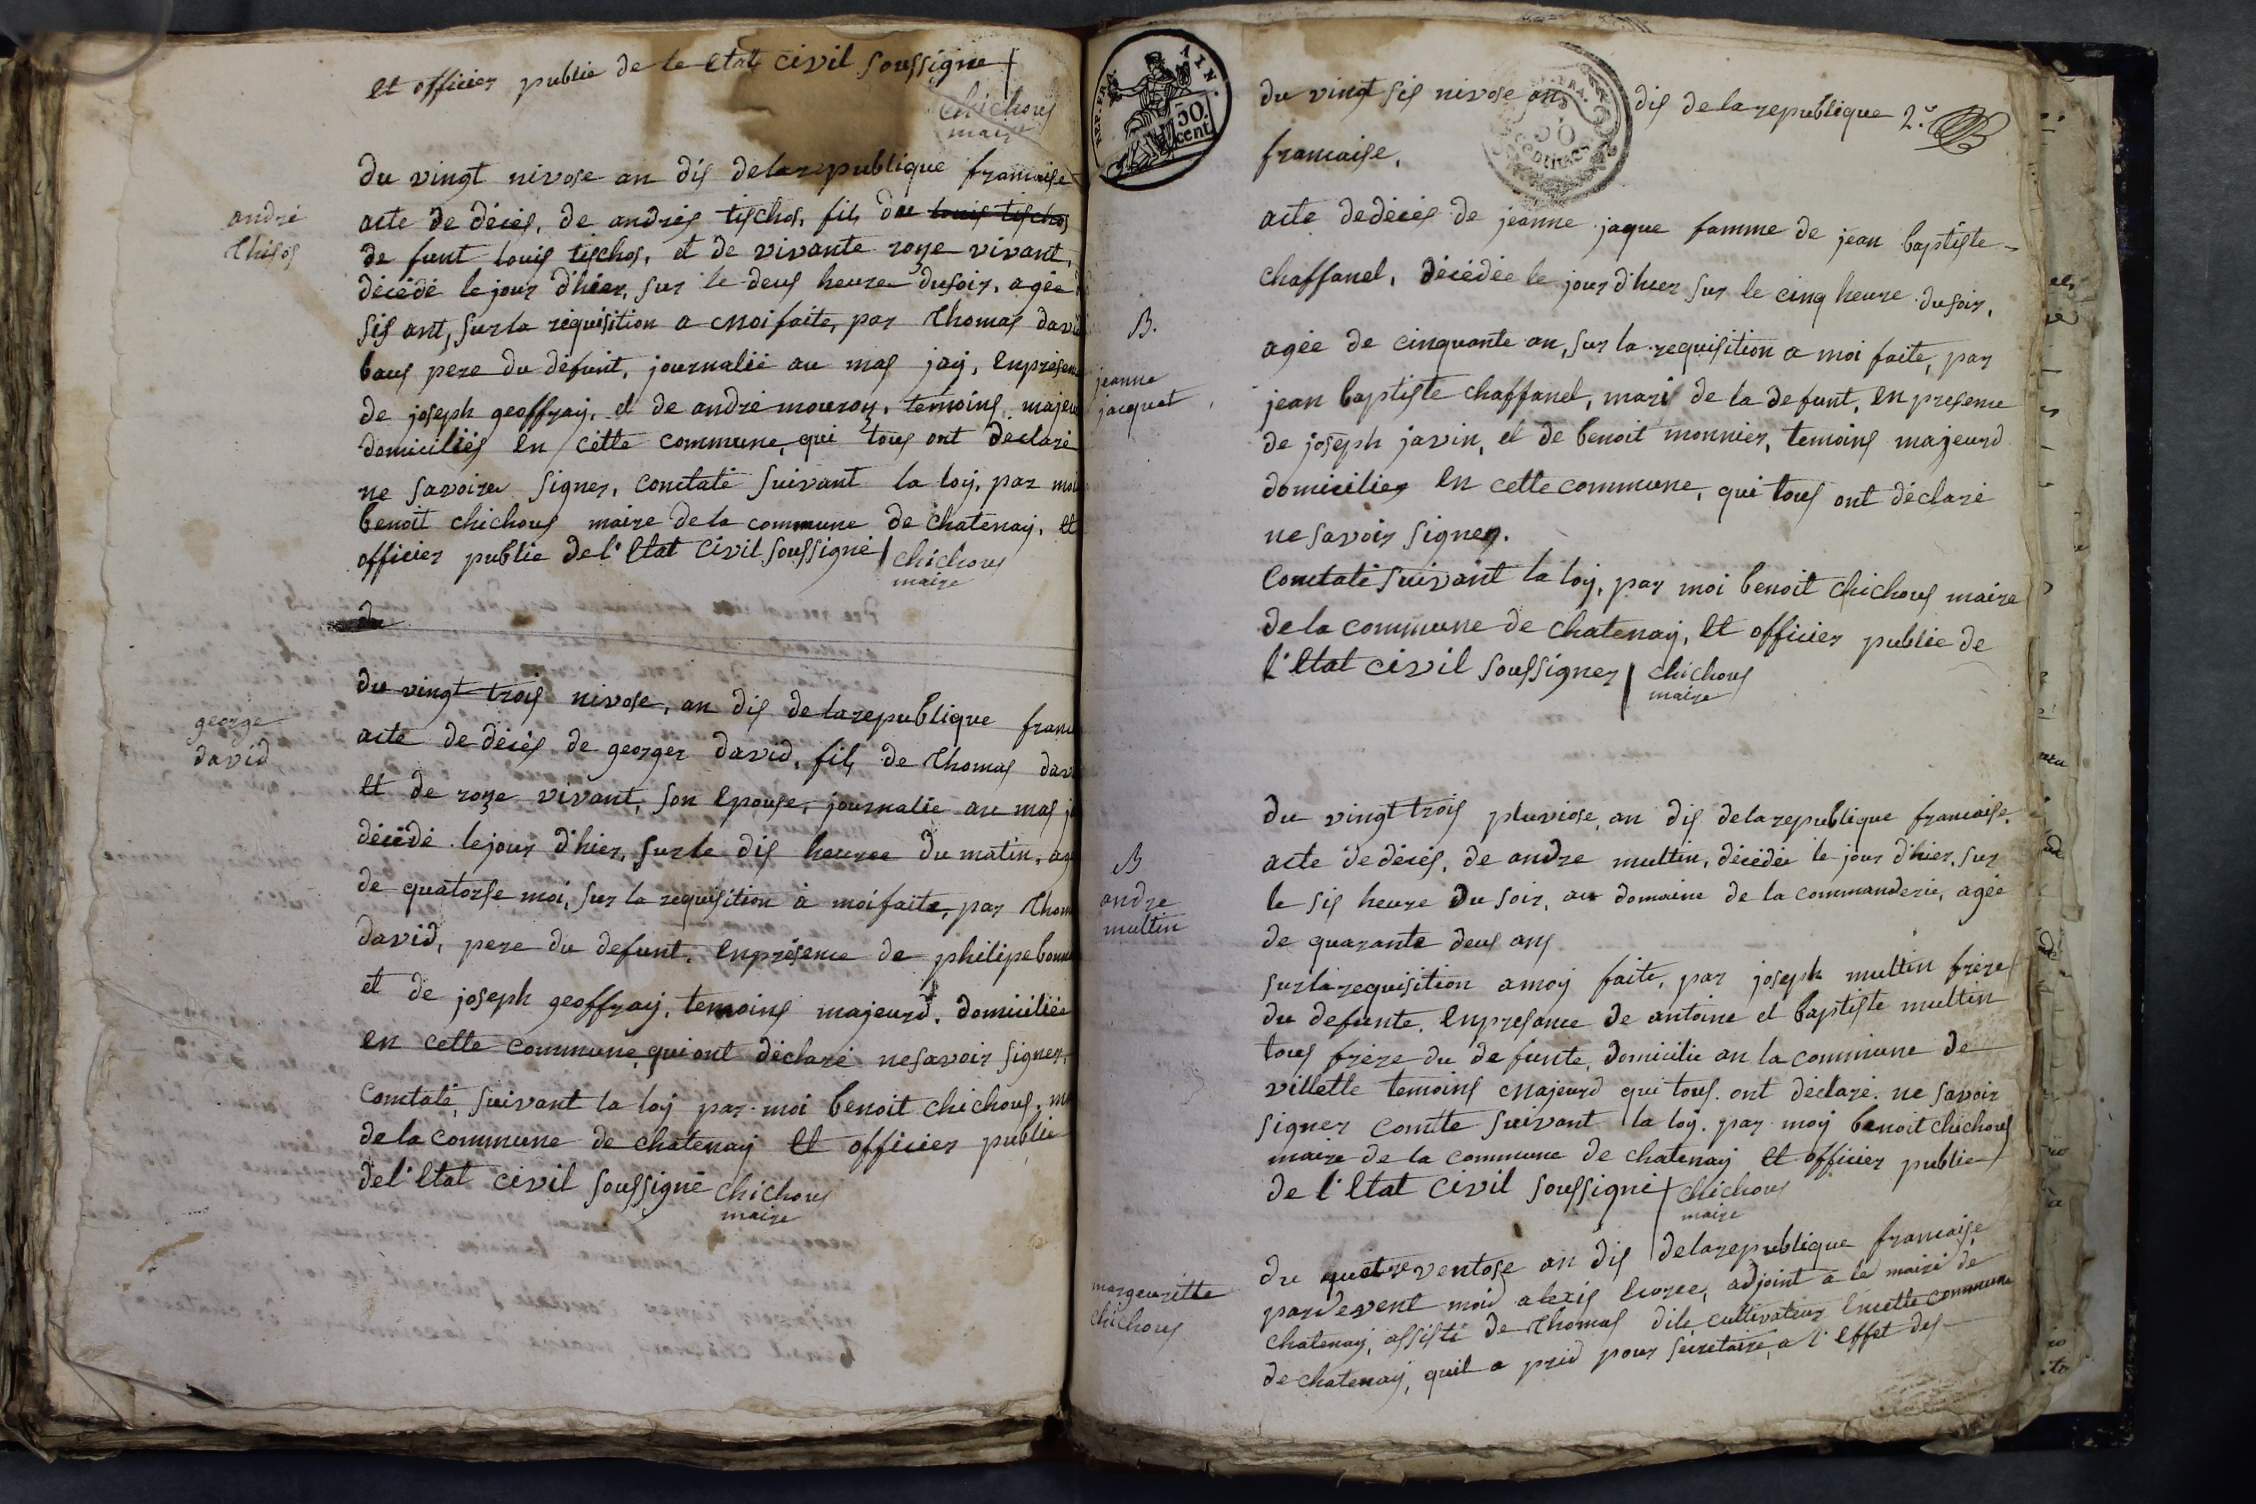 et officier publie de le Etat civil soussigne
chichous
maire
du vingt nivose an dis de la republique francaise
andre
thisos
acte de décés, de andrés tischos, fils du louis tischos
de funt louis tischos, et de vivante roze vivant,
décédé le jour d'hier, sur le deus heure du soir, agée
sis ant, sur la réquisition a moi faite, par thomas david
baus pere du défunt, journalié au mas jay, en présen
de joseph geoffray, et de andré mouroz, temoins majeu
domiciliés en cette commune, qui tous ont declaré
ne savoire signer, constaté suivant la loy, par moi
benoit chichous maire de la commune de chatenay, et
officier publie de l'Etat civil soussigné
chichous
maire
du
du vingt trois nivose, an dis de la republique franc
george
david
acte de décés de georger david, fils de thomas dav
et de roze vivant, son epouse, journalie au mas j
décédé le jour d'hier, sur le dis heuree du matin, ag
de quatorse moi, sur la requisition à moi faite, par thom
david, pere du defunt, en présence de philipe bonn
et de joseph geoffray, temoins majeurd, domiciliée
en cette commune, qui ont déclaré ne savoir signer,
constaté, suivant la loy par moi benoit chichous, m
de la commune de chatenay et officier publie
de l'Etat civil soussigné
chichous
maire
REP. FRA.
AIN.
50
cent.
du vingt sis nivose an dis de la republique 2.e
francaise.
acte de décés de jeanne jaque famme de jean baptiste
chaffanel, décédée le jour d'hier sur le cinq heure du soir,
B.
jeanne
jacquet
agée de cinquante an, sur la requisition a moi faite, par
jean baptiste chaffanel, mari de la defunt, en presence
de joseph javin, et de benoit monnier, temoins majeurd
domicilier en cette commune, qui tous ont déclaré
ne savoir signer.
constaté suivant la loy, par moi benoit chichous maire
de la commune de chatenay, et officier publie de
l'Etat civil soussigner
chichous
maire
du vingt trois pluviose, an dis de la republique francaise.
B
andre
multin
acte de décés, de andre multin, décédée le jour d'hier, sur
le sis heure du soir, au domaine de la commanderie, agée
de quarante deus ans
sur la requisition a moy faite, par joseph multin frere
du defunte, en presance de antoine et baptiste multin
tous frere du defunte, domicilie an la commune de
villette temoins majeurd qui tous ont déclaré ne savoir
signer comtte suivant la loy par moy benoit chichous
maire de la commune de chatenay et officier publie
de l'Etat civil soussigné
chichous
maire
margueritte
chichous
du quatre ventose an dis de la republique francaise
pardevent moid alexis adjoint a le mairi de
chatenay, assisté de thomas dile cultivateur en cette commune
de chatenay, quil a prid pour secretaire, a l'effet des